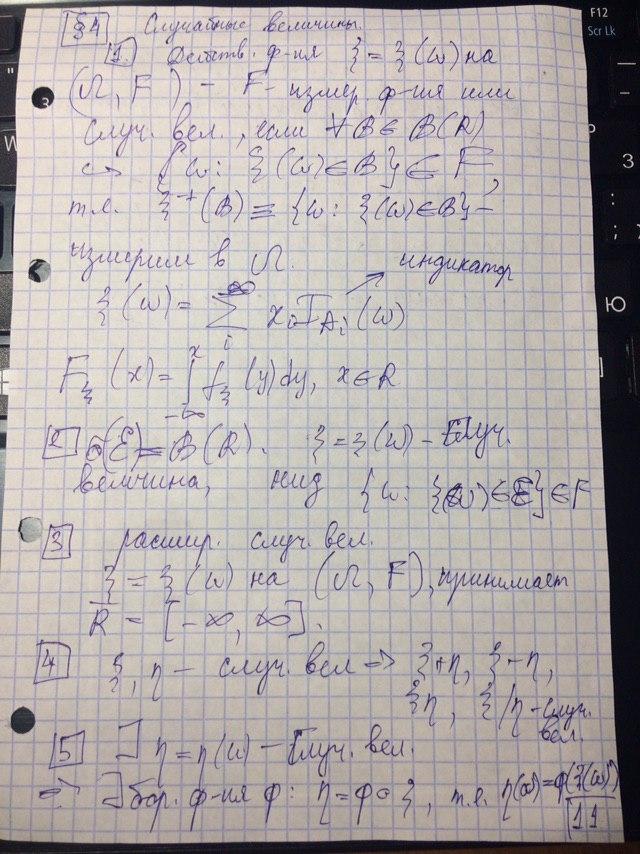 §4 Случайные величины.
1. Действ. ф-ия ξ = ξ(ω) на
(Ω, F) – F- измер. ф-ия или
случ. вел., если ∀B∈B(R)
↪ {ω: ξ(ω)∈B}∈F,
т.е. ξ⁻¹(B) ≡ {ω: ξ(ω)∈B} –
измерим в Ω. индикатор
ξ(ω) = ∑ᵢ^∞ xᵢ I_{Aᵢ}(ω)
F_ξ(x) = ∫_{-∞}^{x} f_ξ(y)dy, x∈R
2 σ(ℰ) = B(R). ξ = ξ(ω) – случ.
величина, {ω: ξ(ω)∈E}∈F
3 расшир. случ. вел.
ξ = ξ(ω) на (Ω, F), принимает
R̅ = [-∞, ∞].
4 ξ, η – случ. вел => ξ+η, ξ-η,
ξη, ξ/η - случ.
вел.
5 ] η = η(ω) – случ. вел.
=> ] бор. ф-ия φ: η = φ∘ξ, т.е. η(ω) = φ(ξ(ω))
11
F12
Scr Lk
W
З
Ю